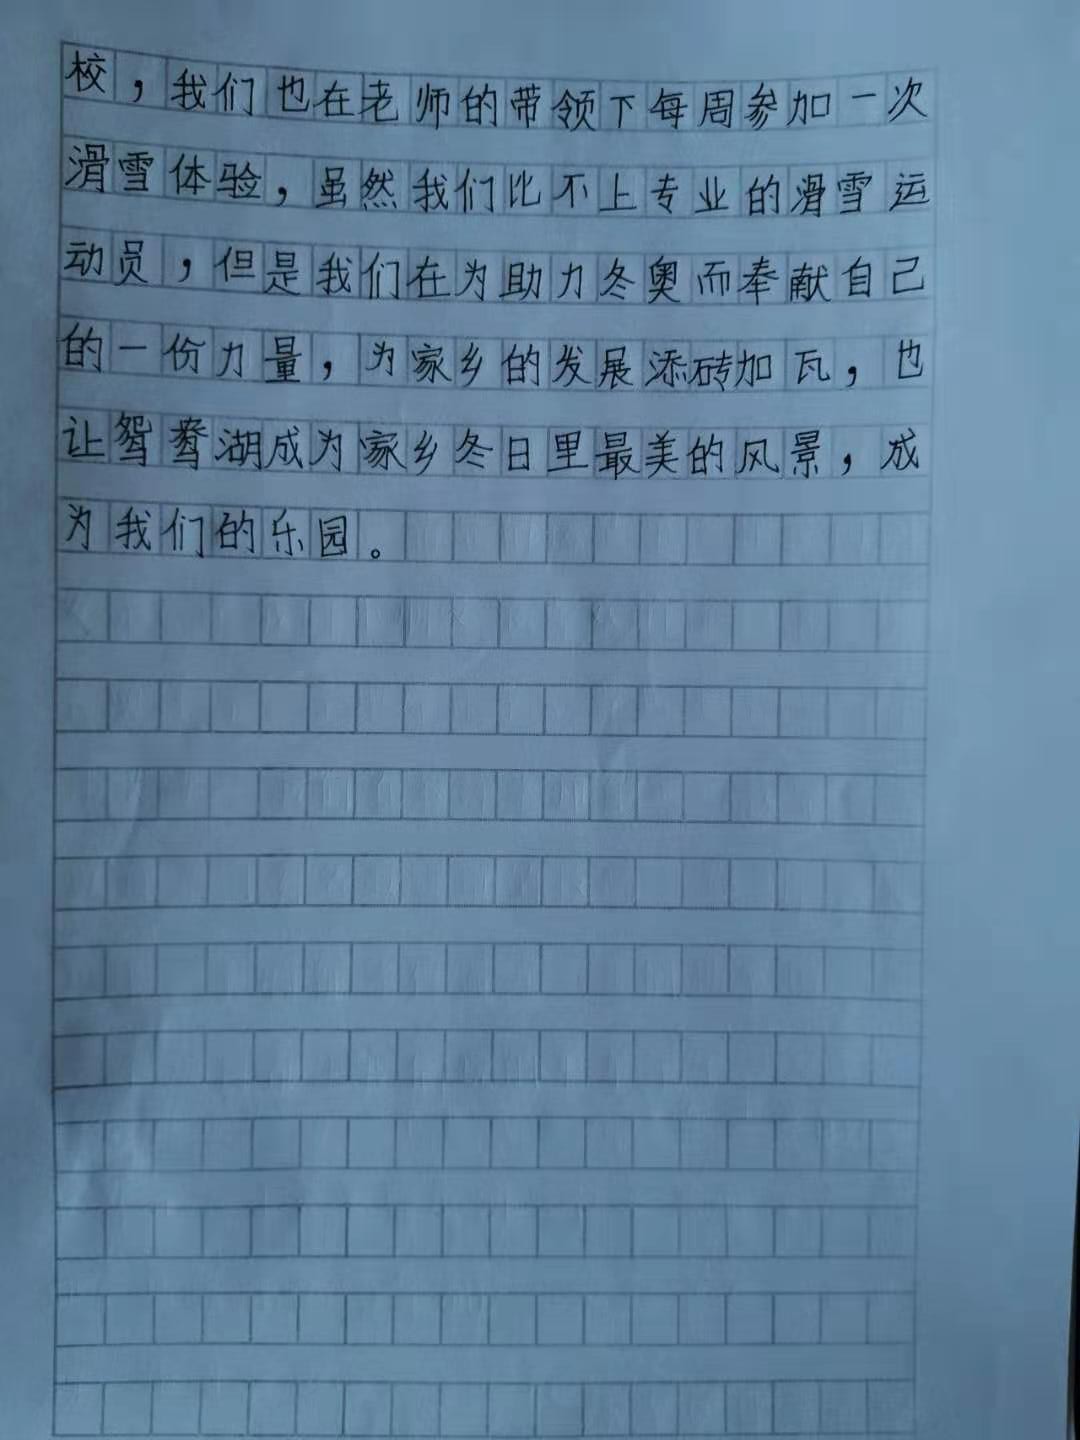 校，我们也在老师的带领下每周参加一次
滑雪体验，虽然我们比不上专业的滑雪运
动员，但是我们在为助力冬奥而奉献自己
的一份力量，为家乡的发展添砖加瓦，也
让鸳鸯湖成为家乡冬日里最美的风景，成
为我们的乐园。